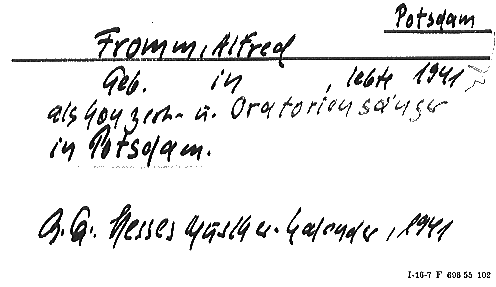 Potsdam
Fromm, Alfred
Geb. in , lebte 1941
als Konzert- u. Oratoriensänger
in Potsdam.
Hesses Musiker-Kalender, 1941
I-16-7 F 606 55 102